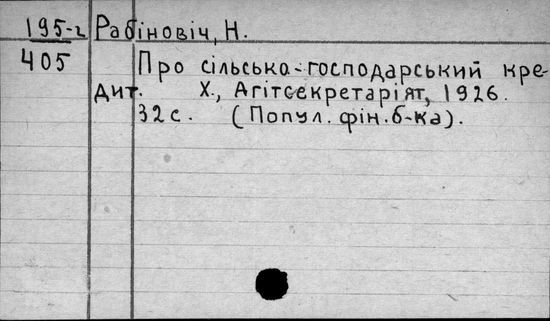 195-г Рабіновіч, Н.
405 Про сільсько-господарський кре-
дит. Х., Агітсекретаріят, 1926.
32с. (Попул. фін. б-ка).